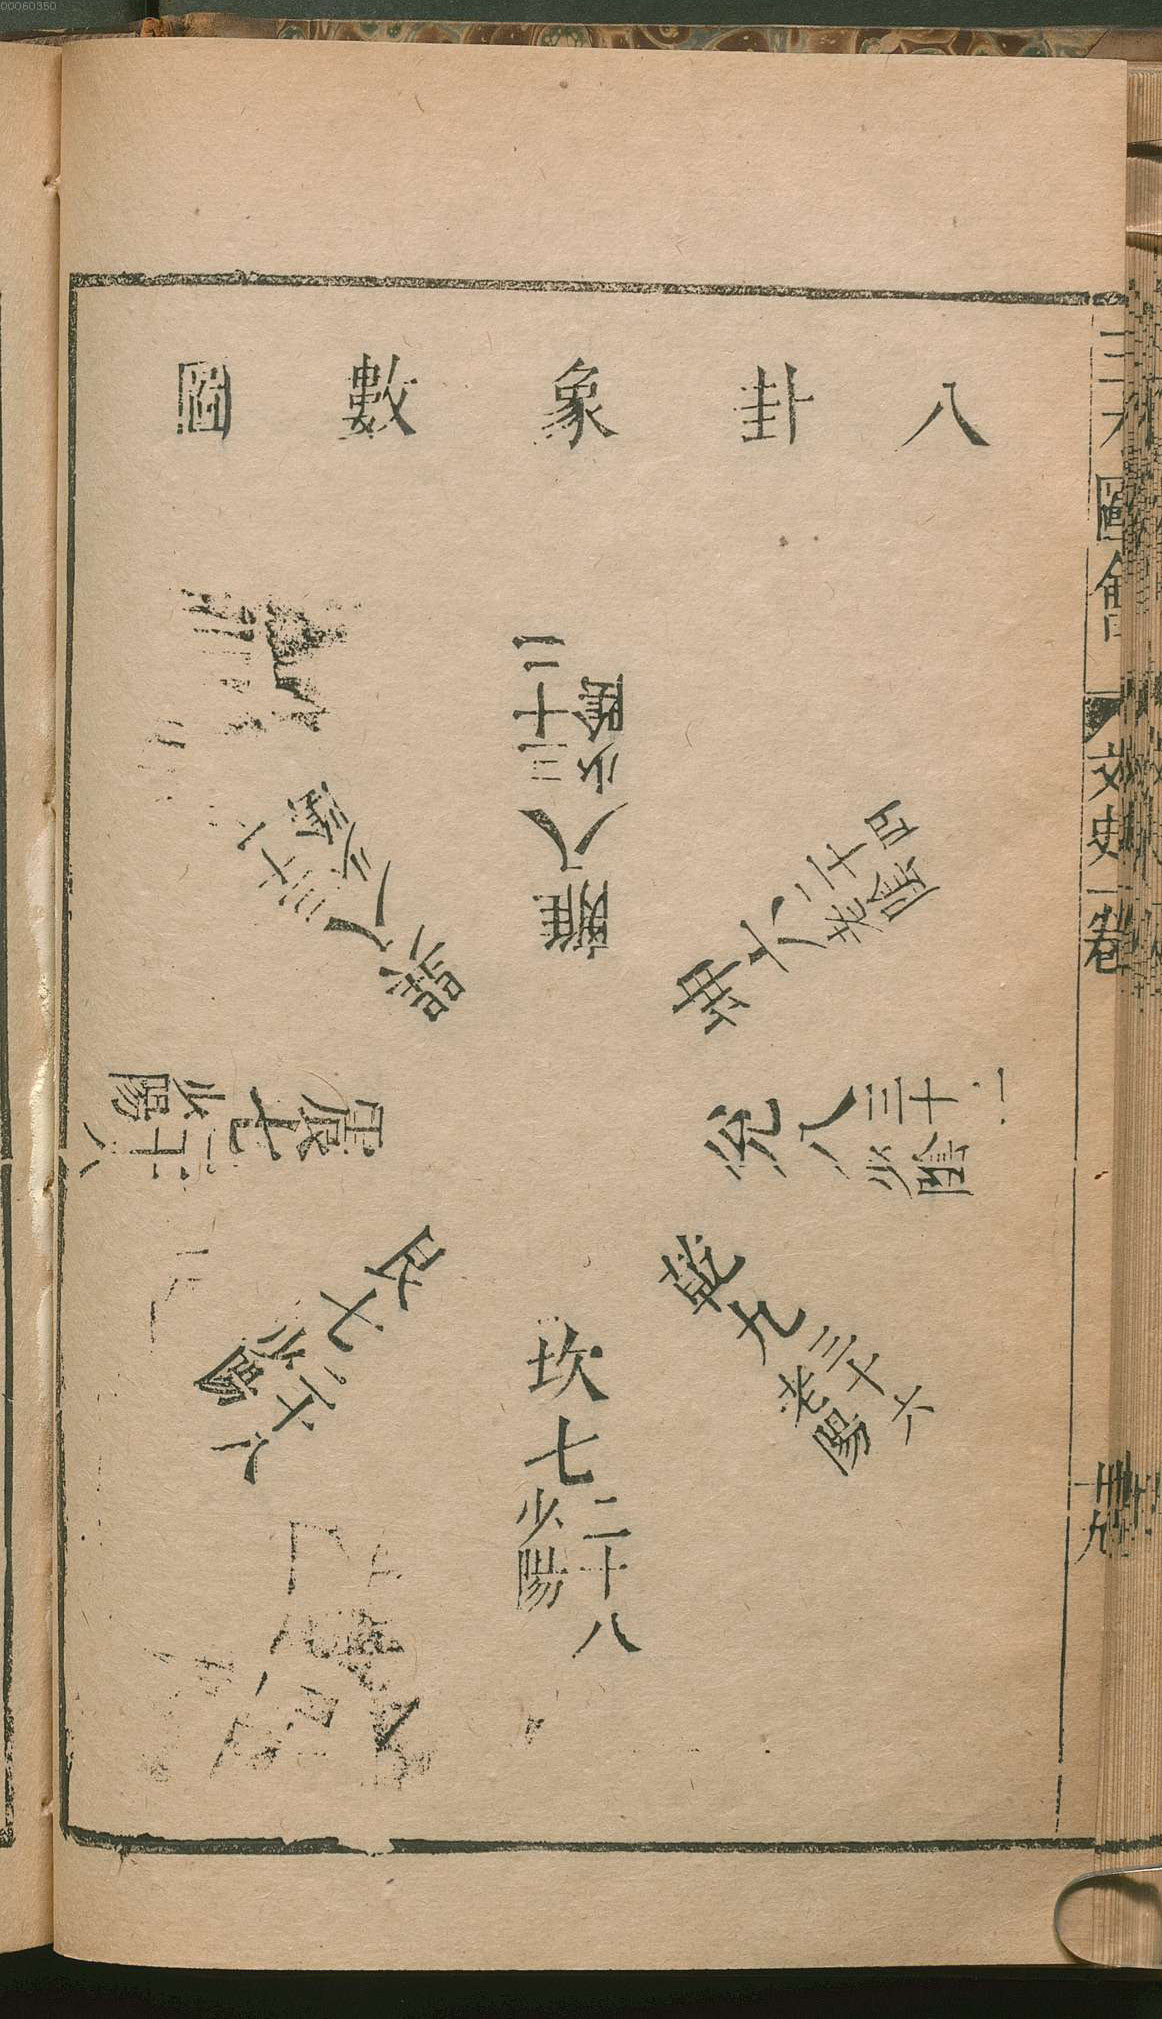 00060350
八卦象數圖
離八
三十二
少陰
坤六
二十四
老陰
兌八
三十二
少陰
乾九
三十六
老陽
坎七
二十八
少陽
艮七
二十八
少陽
震七
二十八
少陽
巽八
三十二
少陰
三才圖會
文史一卷
卅九